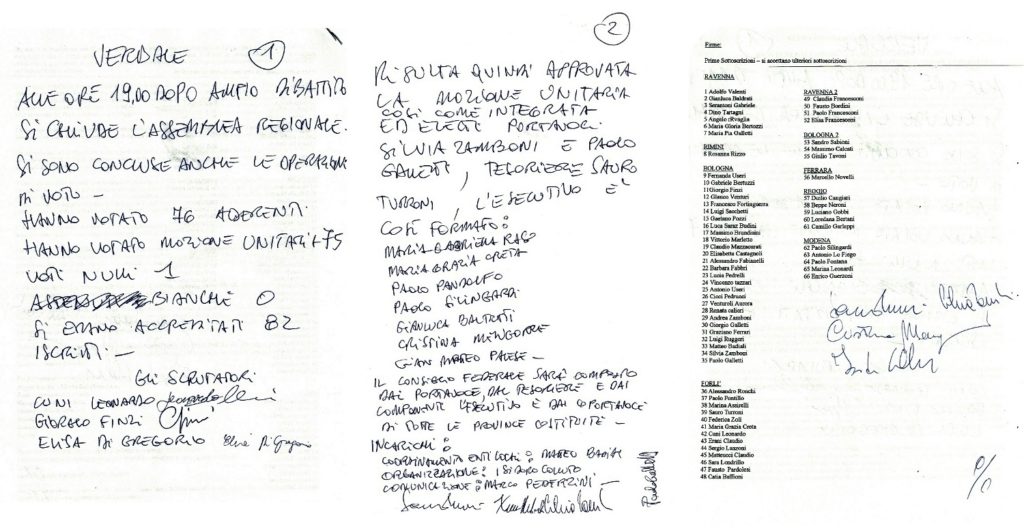 VERBALE
1
ALLE ORE 19,00 DOPO AMPIO DIBATTITO
SI CHIUDE L'ASSEMBLEA REGIONALE.
SI SONO CONCLUSE ANCHE LE OPERAZIONI
DI VOTO -
HANNO VOTATO 76 ADERENTI.
HANNO VOTATO MOZIONE UNITARIA 75
VOTI NULLI 1
BIANCHE 0
SI ERANO ACCREDITATI 82
ISCRITTI. -
GLI SCRUTATORI
CUNI LEONARDO
GIORGIO FINZI
ELISA DI GREGORIO Elisa Di Gregorio
2
RISULTA QUINDI APPROVATA
LA MOZIONE UNITARIA
COSÌ COME INTEGRATA
ED ELETTI PORTAVOCI.
SILVIA ZAMBONI E PAOLO
GALLETTI, TESORIERE SAURO
TURRONI, L'ESECUTIVO E'
COSÌ FORMATO:
MARIA GABRIELLA RAGO
MARIA GRAZIA CRETA
PAOLO PANDOLFO
PAOLO SILINGARDI
GIANLUCA BALDRATI
CRISTINA MENGOZZI
GIAN MARCO PALESE -
IL CONSIGLIO FEDERALE SARÀ COMPOSTO
DAI PORTAVOCE, DAL TESORIERE E DAI
COMPONENTI L'ESECUTIVO E DAI COPORTAVOCE
DI TUTTE LE PROVINCE COSTITUITE -
INCARICHI:
COORDINAMENTO ENTI LOCALI: MATTEO BADIALI
ORGANIZZAZIONE:
COMUNICAZIONE: MARCO PEDERZINI -
Firme:
Prime Sottoscrizioni – si accettano ulteriori sottoscrizioni
RAVENNA
1 Adolfo Valenti
2 Gianluca Baldrati
3 Serantoni Gabriele
4 Dino Tartagni
5 Angelo rRvaglia
6 Maria Gloria Bertozzi
7 Maria Pia Galletti
RIMINI
8 Rosanna Rizzo
BOLOGNA
9 Fernanda Useri
10 Gabriele Bertuzzi
11Giorgio Finzi
12 Glauco Venturi
13 Francesco Fortinguerra
14 Luigi Sacchetti
15 Gaetano Pozzi
16 Luca Saraz Budini
17 Massimo Brundisini
18 Vittorio Marletto
19 Claudio Mazzacurati
20 Elisabetta Castagneti
21 Alessandro Fabianelli
22 Barbara Fabbri
23 Lucia Pedrelli
24 Vincenzo tazzari
25 Antonio Useri
26 Cicci Pedrucci
27 Venturoli Aurora
28 Renata calieri
29 Andrea Zamboni
30 Giorgio Galletti
31 Graziano Ferrari
32 Luigi Ruggeri
33 Matteo Badiali
34 Silvia Zamboni
35 Paolo Galletti
FORLI'
36 Alessandro Ronchi
37 Paolo Pontillo
38 Marina Assirelli
39 Sauro Turroni
40 Federica Zoli
41 Maria Grazia Creta
42 Cuni Leonardo
43 Erani Claudio
44 Sergio Lanzoni
45 Matteucci Claudio
46 Sara Londrillo
47 Fausto Pardolesi
48 Catia Buffioni
RAVENNA 2
49 Claudia Francesconi
50 Fausto Bordini
51 Paolo Francesconi
52 Elisa Francesconi
BOLOGNA 2
53 Sandro Sabioni
54 Massimo Calcati
55 Giulio Tavoni
FERRARA
56 Marcello Novelli
REGGIO
57 Duilio Cangiari
58 Beppe Neroni
59 Luciano Gobbi
60 Loredana Bertani
61 Camillo Garleppi
MODENA
62 Paolo Silingardi
63 Antonio Lo Fiego
64 Paolo Fontana
65 Marina Leonardi
66 Enrico Guerzoni